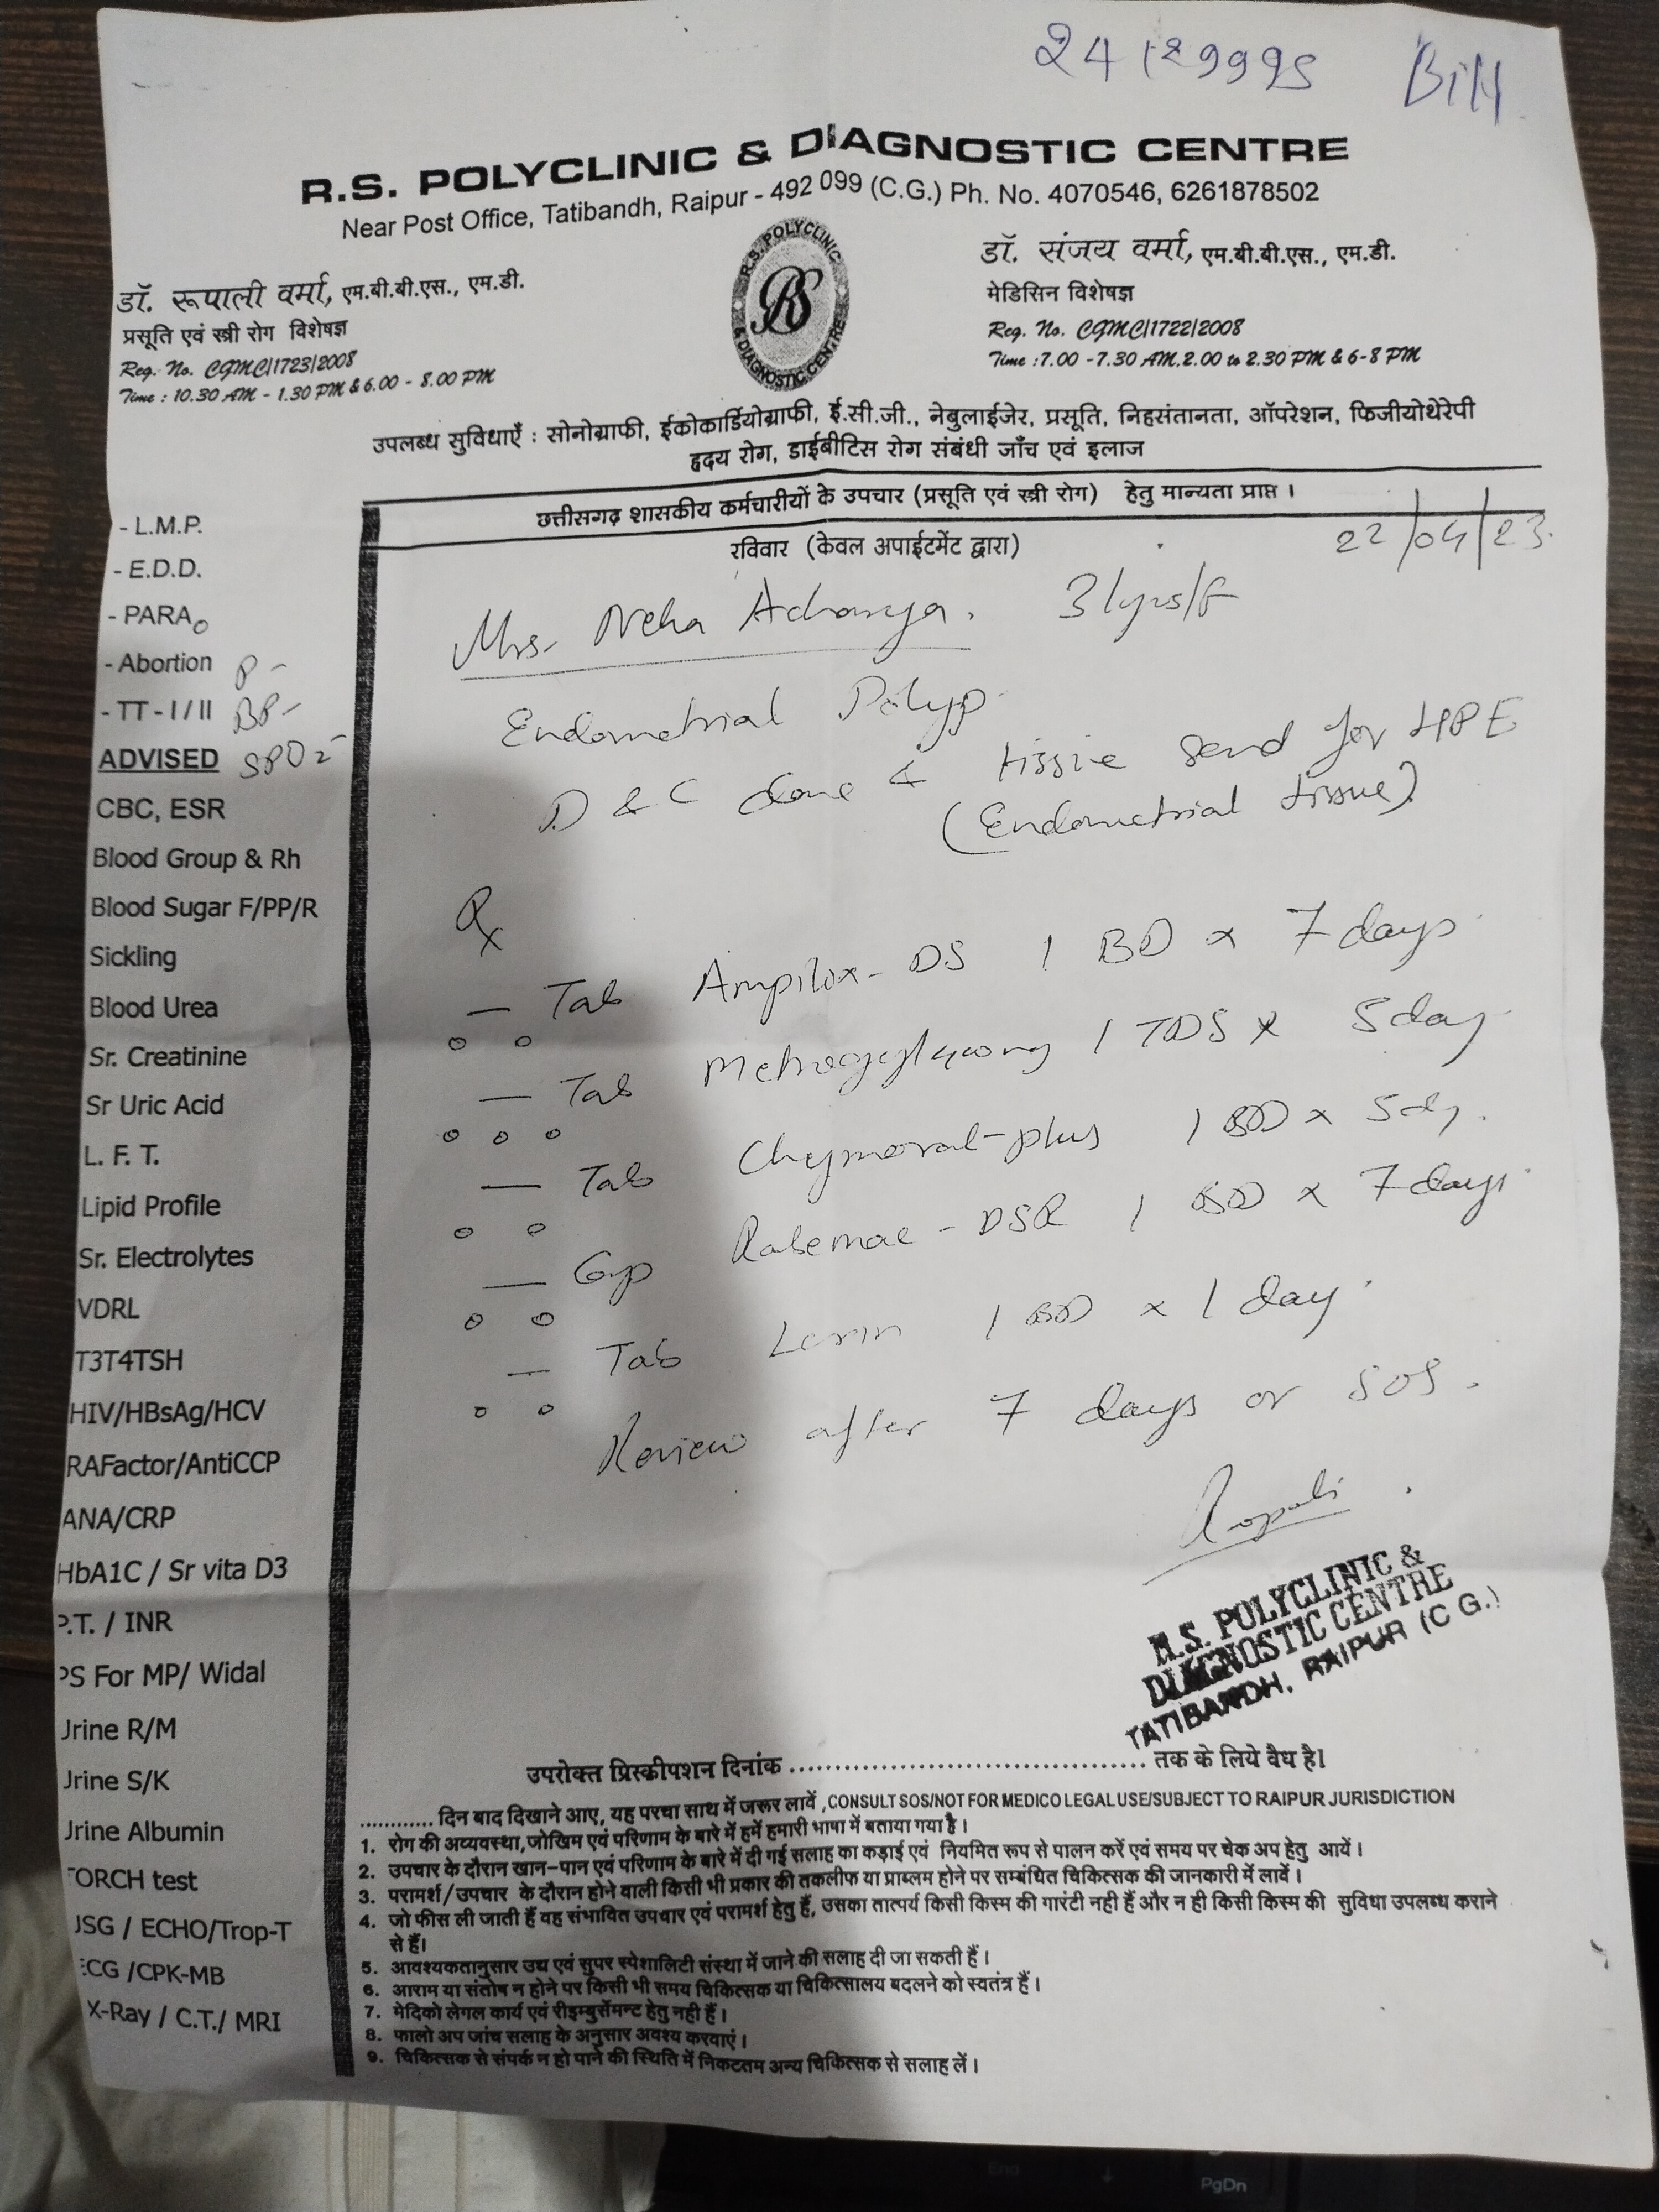 24129995 Bill
R.S. POLYCLINIC & DIAGNOSTIC CENTRE
Near Post Office, Tatibandh, Raipur - 492 099 (C.G.) Ph. No. 4070546, 6261878502
R.S. POLYCLINIC & DIAGNOSTIC CENTRE
RS
डॉ. रूपाली वर्मा, एम.बी.बी.एस., एम.डी.
प्रसूति एवं स्त्री रोग विशेषज्ञ
Reg. No. CGMC/1723/2008
Time : 10.30 AM - 1.30 PM & 6.00 - 8.00 PM
डॉ. संजय वर्मा, एम.बी.बी.एस., एम.डी.
मेडिसिन विशेषज्ञ
Reg. No. CGMC/1722/2008
Time : 7.00 - 7.30 AM, 2.00 to 2.30 PM & 6-8 PM
उपलब्ध सुविधाएँ : सोनोग्राफी, ईकोकार्डियोग्राफी, ई.सी.जी., नेबुलाईजेर, प्रसूति, निहसंतानता, ऑपरेशन, फिजीयोथेरेपी
हृदय रोग, डाईबीटिस रोग संबंधी जाँच एवं इलाज
छत्तीसगढ़ शासकीय कर्मचारीयों के उपचार (प्रसूति एवं स्त्री रोग) हेतु मान्यता प्राप्त।
रविवार (केवल अपाईटमेंट द्वारा)
22/04/23
- L.M.P.
- E.D.D.
- PARA
- Abortion P -
- TT - I / II BP -
ADVISED SPO2 -
CBC, ESR
Blood Group & Rh
Blood Sugar F/PP/R
Sickling
Blood Urea
Sr. Creatinine
Sr Uric Acid
L. F. T.
Lipid Profile
Sr. Electrolytes
VDRL
T3T4TSH
HIV/HBsAg/HCV
RAFactor/AntiCCP
ANA/CRP
HbA1C / Sr vita D3
P.T. / INR
PS For MP/ Widal
Urine R/M
Urine S/K
Urine Albumin
TORCH test
USG / ECHO/Trop-T
ECG /CPK-MB
X-Ray / C.T./ MRI
Mrs. Neha Acharya. 31yrs/F
Endometrial Polyp
D & C done & tissie send for HPE
(Endometrial tissue)
Rx
— Tab Ampilox-DS 1 BD x 7 days
— Tab Metrogyl 400mg 1 TDS x 5 day
— Tab Chymoral-plus 1 BD x 5 dy.
— Cap Rabemac - DSR 1 BD x 7 days
— Tab 1 BD x 1 day
Review after 7 days or SOS.
Rupali
R.S. POLYCLINIC &
DIAGNOSTIC CENTRE
TATIBANDH, RAIPUR (C G.)
उपरोक्त प्रिस्क्रीपशन दिनांक ........................................ तक के लिये वैध है।
............ दिन बाद दिखाने आए, यह परचा साथ में जरूर लावें ,CONSULT SOS/NOT FOR MEDICO LEGAL USE/SUBJECT TO RAIPUR JURISDICTION
1. रोग की अव्यवस्था,जोखिम एवं परिणाम के बारे में हमें हमारी भाषा में बताया गया है।
2. उपचार के दौरान खान-पान एवं परिणाम के बारे में दी गई सलाह का कड़ाई एवं नियमित रूप से पालन करें एवं समय पर चेक अप हेतु आयें।
3. परामर्श/उपचार के दौरान होने वाली किसी भी प्रकार की तकलीफ या प्राब्लम होने पर सम्बंधित चिकित्सक की जानकारी में लावें।
4. जो फीस ली जाती हैं वह संभावित उपचार एवं परामर्श हेतु हैं, उसका तात्पर्य किसी किस्म की गारंटी नही हैं और न ही किसी किस्म की सुविधा उपलब्ध कराने
से हैं।
5. आवश्यकतानुसार उच्च एवं सुपर स्पेशालिटी संस्था में जाने की सलाह दी जा सकती हैं।
6. आराम या संतोष न होने पर किसी भी समय चिकित्सक या चिकित्सालय बदलने को स्वतंत्र हैं।
7. मेदिको लेगल कार्य एवं रीइम्बुर्सेमन्ट हेतु नही हैं।
8. फालो अप जांच सलाह के अनुसार अवश्य करवाएं।
9. चिकित्सक से संपर्क न हो पाने की स्थिति में निकटतम अन्य चिकित्सक से सलाह लें।
PgDn
End